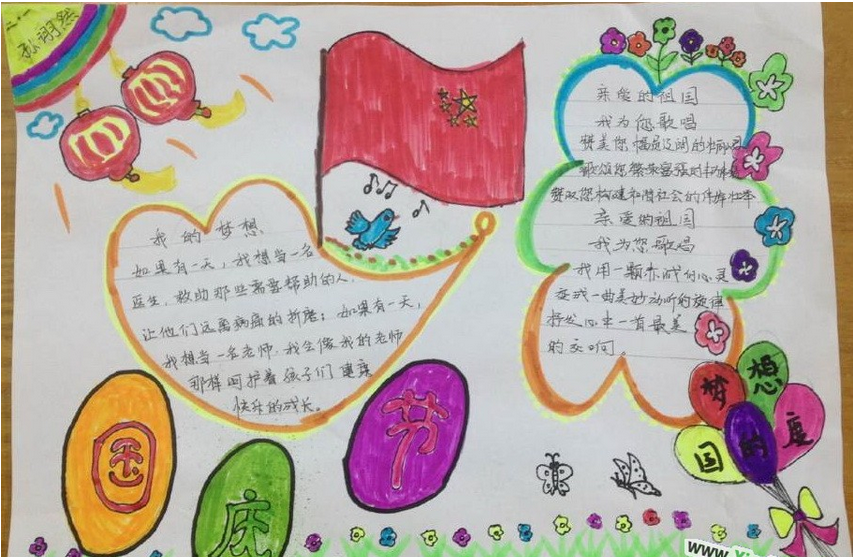 孙诩然
亲爱的祖国
我为您歌唱
赞美您幅员辽阔的
歌颂您繁荣富强的
赞叹您构建和谐社会的伟岸壮举
亲爱的祖国
我为您歌唱
我用一颗赤诚的心灵
变成一曲美妙动听的旋律
抒发心中一首最美
的交响。
我的梦想
如果有一天，我想当一名
医生，救助那些需要帮助的人，
让他们远离病痛的折磨；如果有一天，
我想当一名老师，我会像我的老师
那样呵护着孩子们健康
快乐的成长。
国
庆
节
梦想
国的度
www.